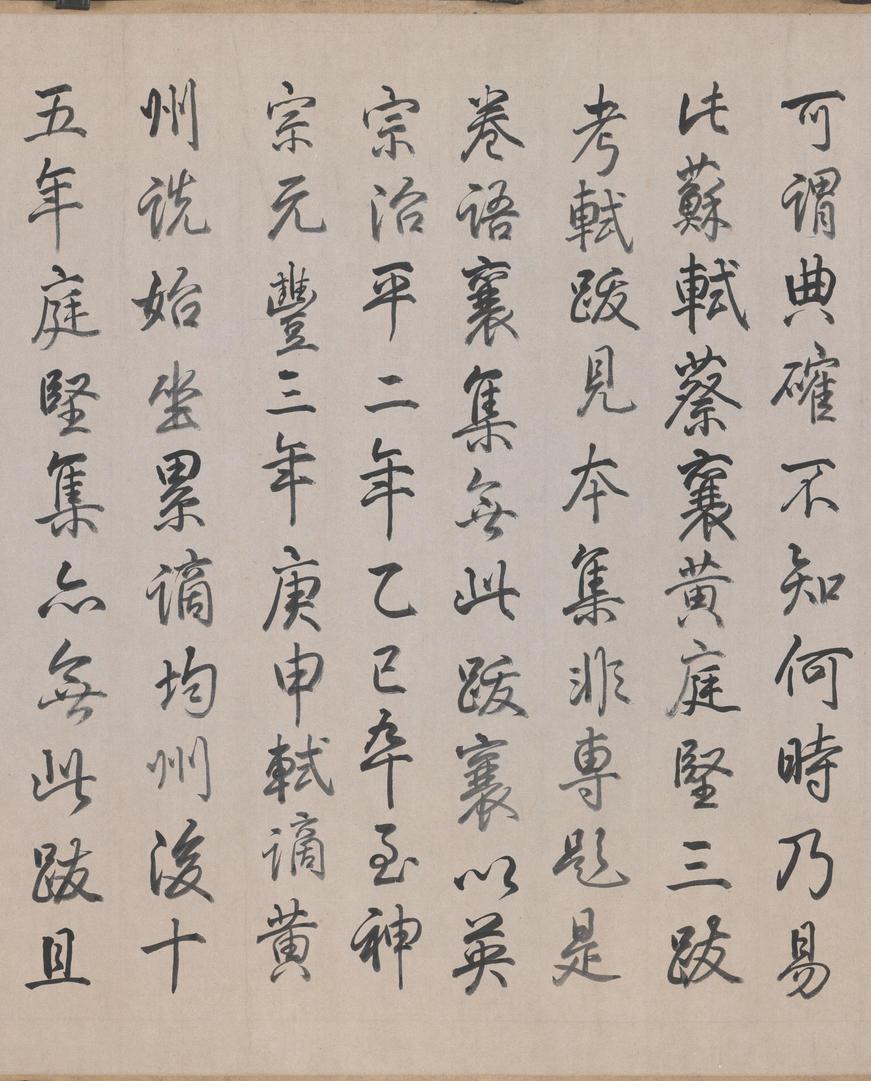 可謂典確不知何時乃易
此蘇軾蔡襄黃庭堅三跋
考軾跋見本集非專題是
卷語襄集無此跋襄以英
宗治平二年乙巳卒至神
宗元豐三年庚申軾謫黃
州詵始坐累謫均州後十
五年庭堅集亦無此跋且